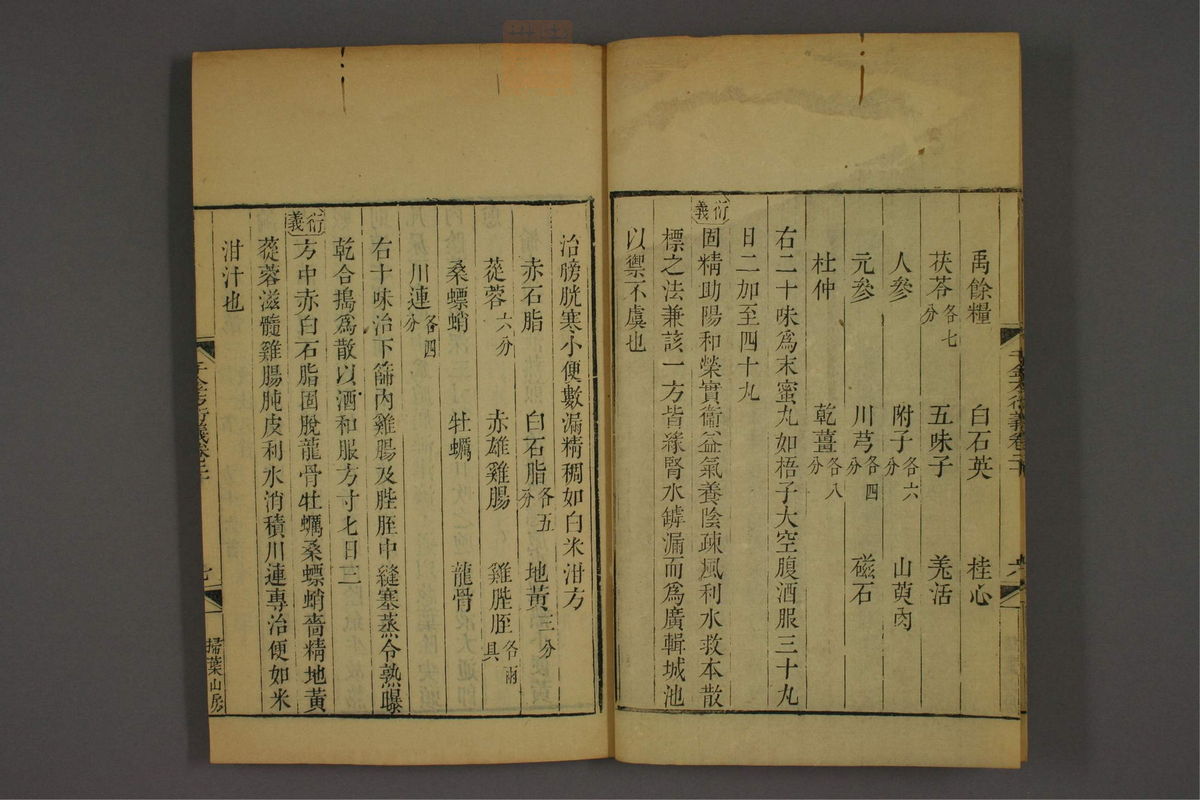 禹餘糧 白石英 桂心
茯苓各七分 五味子 羗活
人參 附子各六分 山萸肉
元參 川芎各四分 磁石
杜仲 乾薑各八分
右二十味爲末蜜丸如梧子大空腹酒服三十丸
日二加至四十丸
衍義
固精助陽和榮實衞益氣養陰疎風利水救本散
標之法兼該一方皆緣腎水罅漏而爲廣輯城池
以禦不虞也
治膀胱寒小便數漏精稠如白米泔方
赤石脂 白石脂各五分 地黃三分
蓯蓉六分 赤雄雞腸 雞䏶胵各兩具
桑螵蛸 牡蠣 龍骨
川連各四分
右十味治下篩內雞腸及䏶胵中縫塞蒸令熟曝
乾合搗爲散以酒和服方寸七日三
衍義
方中赤白石脂固脫龍骨牡蠣桑螵蛸嗇精地黃
蓯蓉滋髓雞腸肫皮利水消積川連專治便如米
泔汁也
掃葉山房